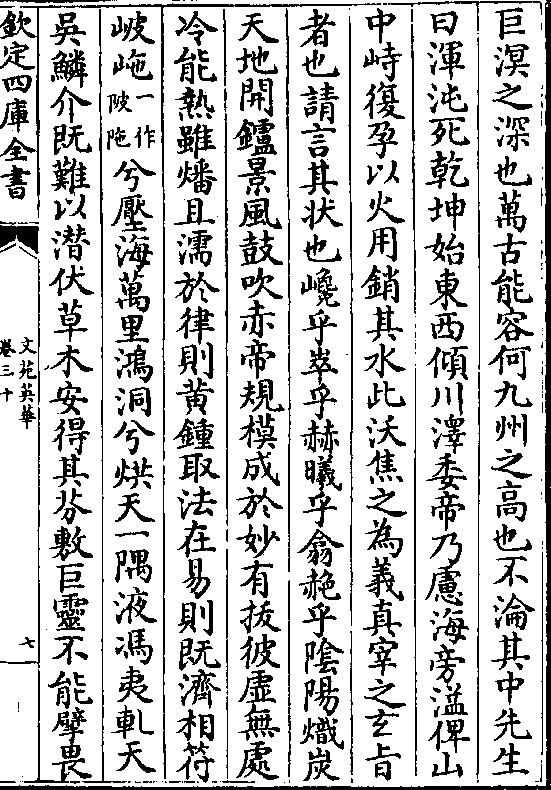 巨溟之深也萬古能容何九州之高也不淪其中先生
曰渾沌死乾坤始東西傾川澤委帝乃慮海旁溢俾山
中峙復孕以火用銷其水此沃焦之為義真宰之玄旨
者也請言其狀也巉乎崒乎赫曦乎翕赩乎陰陽熾炭
天地開鑪景風鼓吹赤帝規模成於妙有拔彼虛無處
冷能熱雖燔且濡於律則黃鍾取法在易則既濟相符
岥岮一作陂陁兮壓海萬里鴻洞兮烘天一隅液馮夷軋天
吳鱗介既難以潛伏草木安得其芬敷巨靈不能擘畏
欽定四庫全書
文苑英華
卷三十
七